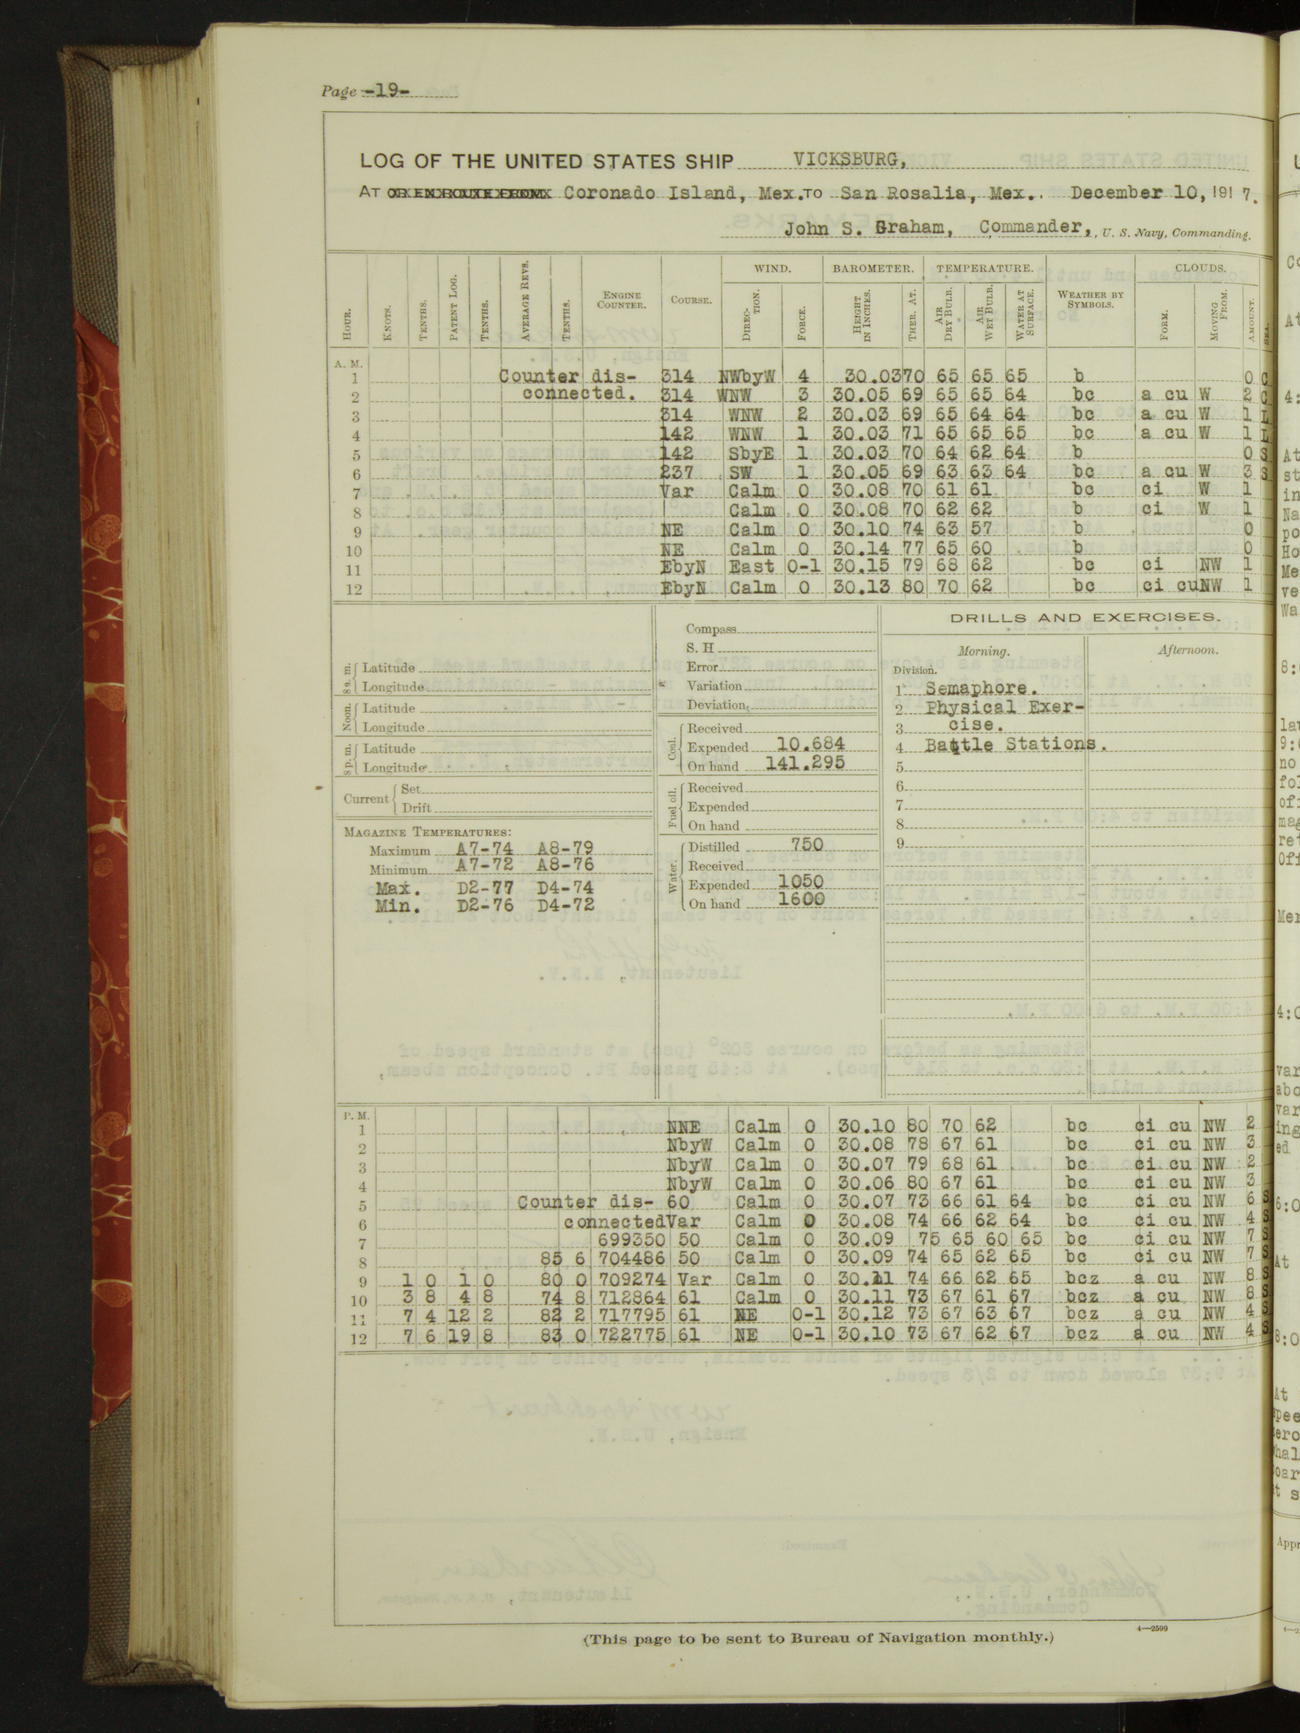 Page -19-
LOG OF THE UNITED STATES SHIP VICKSBURG,
AT OR EN ROUTE FROM Coronado Island, Mex. TO San Rosalia, Mex. December 10, 1917.
John S. Graham, Commander, , U. S. Navy, Commanding.
WIND. BAROMETER. TEMPERATURE. CLOUDS.
HOUR. KNOTS. TENTHS. PATENT LOG. TENTHS. AVERAGE REVS. TENTHS. ENGINE COUNTER. COURSE. DIRECTION. FORCE. HEIGHT IN INCHES. THER. AT. AIR DRY BULB. AIR WET BULB. WATER AT SURFACE. WEATHER BY SYMBOLS. FORM. MOVING FROM. AMOUNT. SEA.
A. M.
1 Counter dis- 314 NWbyW 4 30.03 70 65 65 65 b 0 C
2 connected. 314 WNW 3 30.05 69 65 65 64 bc a cu W 2 C
3 314 WNW 2 30.03 69 65 64 64 bc a cu W 1 L
4 142 WNW 1 30.03 71 65 65 65 bc a cu W 1 L
5 142 SbyE 1 30.03 70 64 62 64 b 0 S
6 237 SW 1 30.05 69 63 63 64 bc a cu W 3 S
7 Var Calm 0 30.08 70 61 61 bc ci W 1
8 Calm 0 30.08 70 62 62 b ci W 1
9 NE Calm 0 30.10 74 63 57 b 0
10 NE Calm 0 30.14 77 65 60 b 0
11 EbyN East 0-1 30.15 79 68 62 bc ci NW 1
12 EbyN Calm 0 30.13 80 70 62 bc ci cu NW 1
8 a. m. Latitude
Longitude
Noon. Latitude
Longitude
8 p. m. Latitude
Longitude
Current Set
Drift
MAGAZINE TEMPERATURES:
Maximum A7-74 A8-79
Minimum A7-72 A8-76
Max. D2-77 D4-74
Min. D2-76 D4-72
Compass
S. H
Error
Variation
Deviation
Coal. Received
Expended 10.684
On hand 141.295
Fuel oil. Received
Expended
On hand
Water. Distilled 750
Received
Expended 1050
On hand 1600
DRILLS AND EXERCISES.
Morning. Afternoon.
Division.
1 Semaphore.
2 Physical Exer-
3 cise.
4 Battle Stations.
5
6
7
8
9
P. M.
1 NNE Calm 0 30.10 80 70 62 bc ci cu NW 2
2 NbyW Calm 0 30.08 78 67 61 bc ci cu NW 3
3 NbyW Calm 0 30.07 79 68 61 bc ci cu NW 2
4 NbyW Calm 0 30.06 80 67 61 bc ci cu NW 3
5 Counter dis- 60 Calm 0 30.07 73 66 61 64 bc ci cu NW 6 S
6 connected Var Calm 0 30.08 74 66 62 64 bc ci cu NW 4 S
7 699350 50 Calm 0 30.09 75 65 60 65 bc ci cu NW 7 S
8 85 6 704486 50 Calm 0 30.09 74 65 62 65 bc ci cu NW 7 S
9 1 0 1 0 80 0 709274 Var Calm 0 30.11 74 66 62 65 bcz a cu NW 8 S
10 3 8 4 8 74 8 712864 61 Calm 0 30.11 73 67 61 67 bcz a cu NW 8 S
11 7 4 12 2 82 2 717795 61 NE 0-1 30.12 73 67 63 67 bcz a cu NW 4 S
12 7 6 19 8 83 0 722775 61 NE 0-1 30.10 73 67 62 67 bcz a cu NW 4
(This page to be sent to Bureau of Navigation monthly.)
4—2599